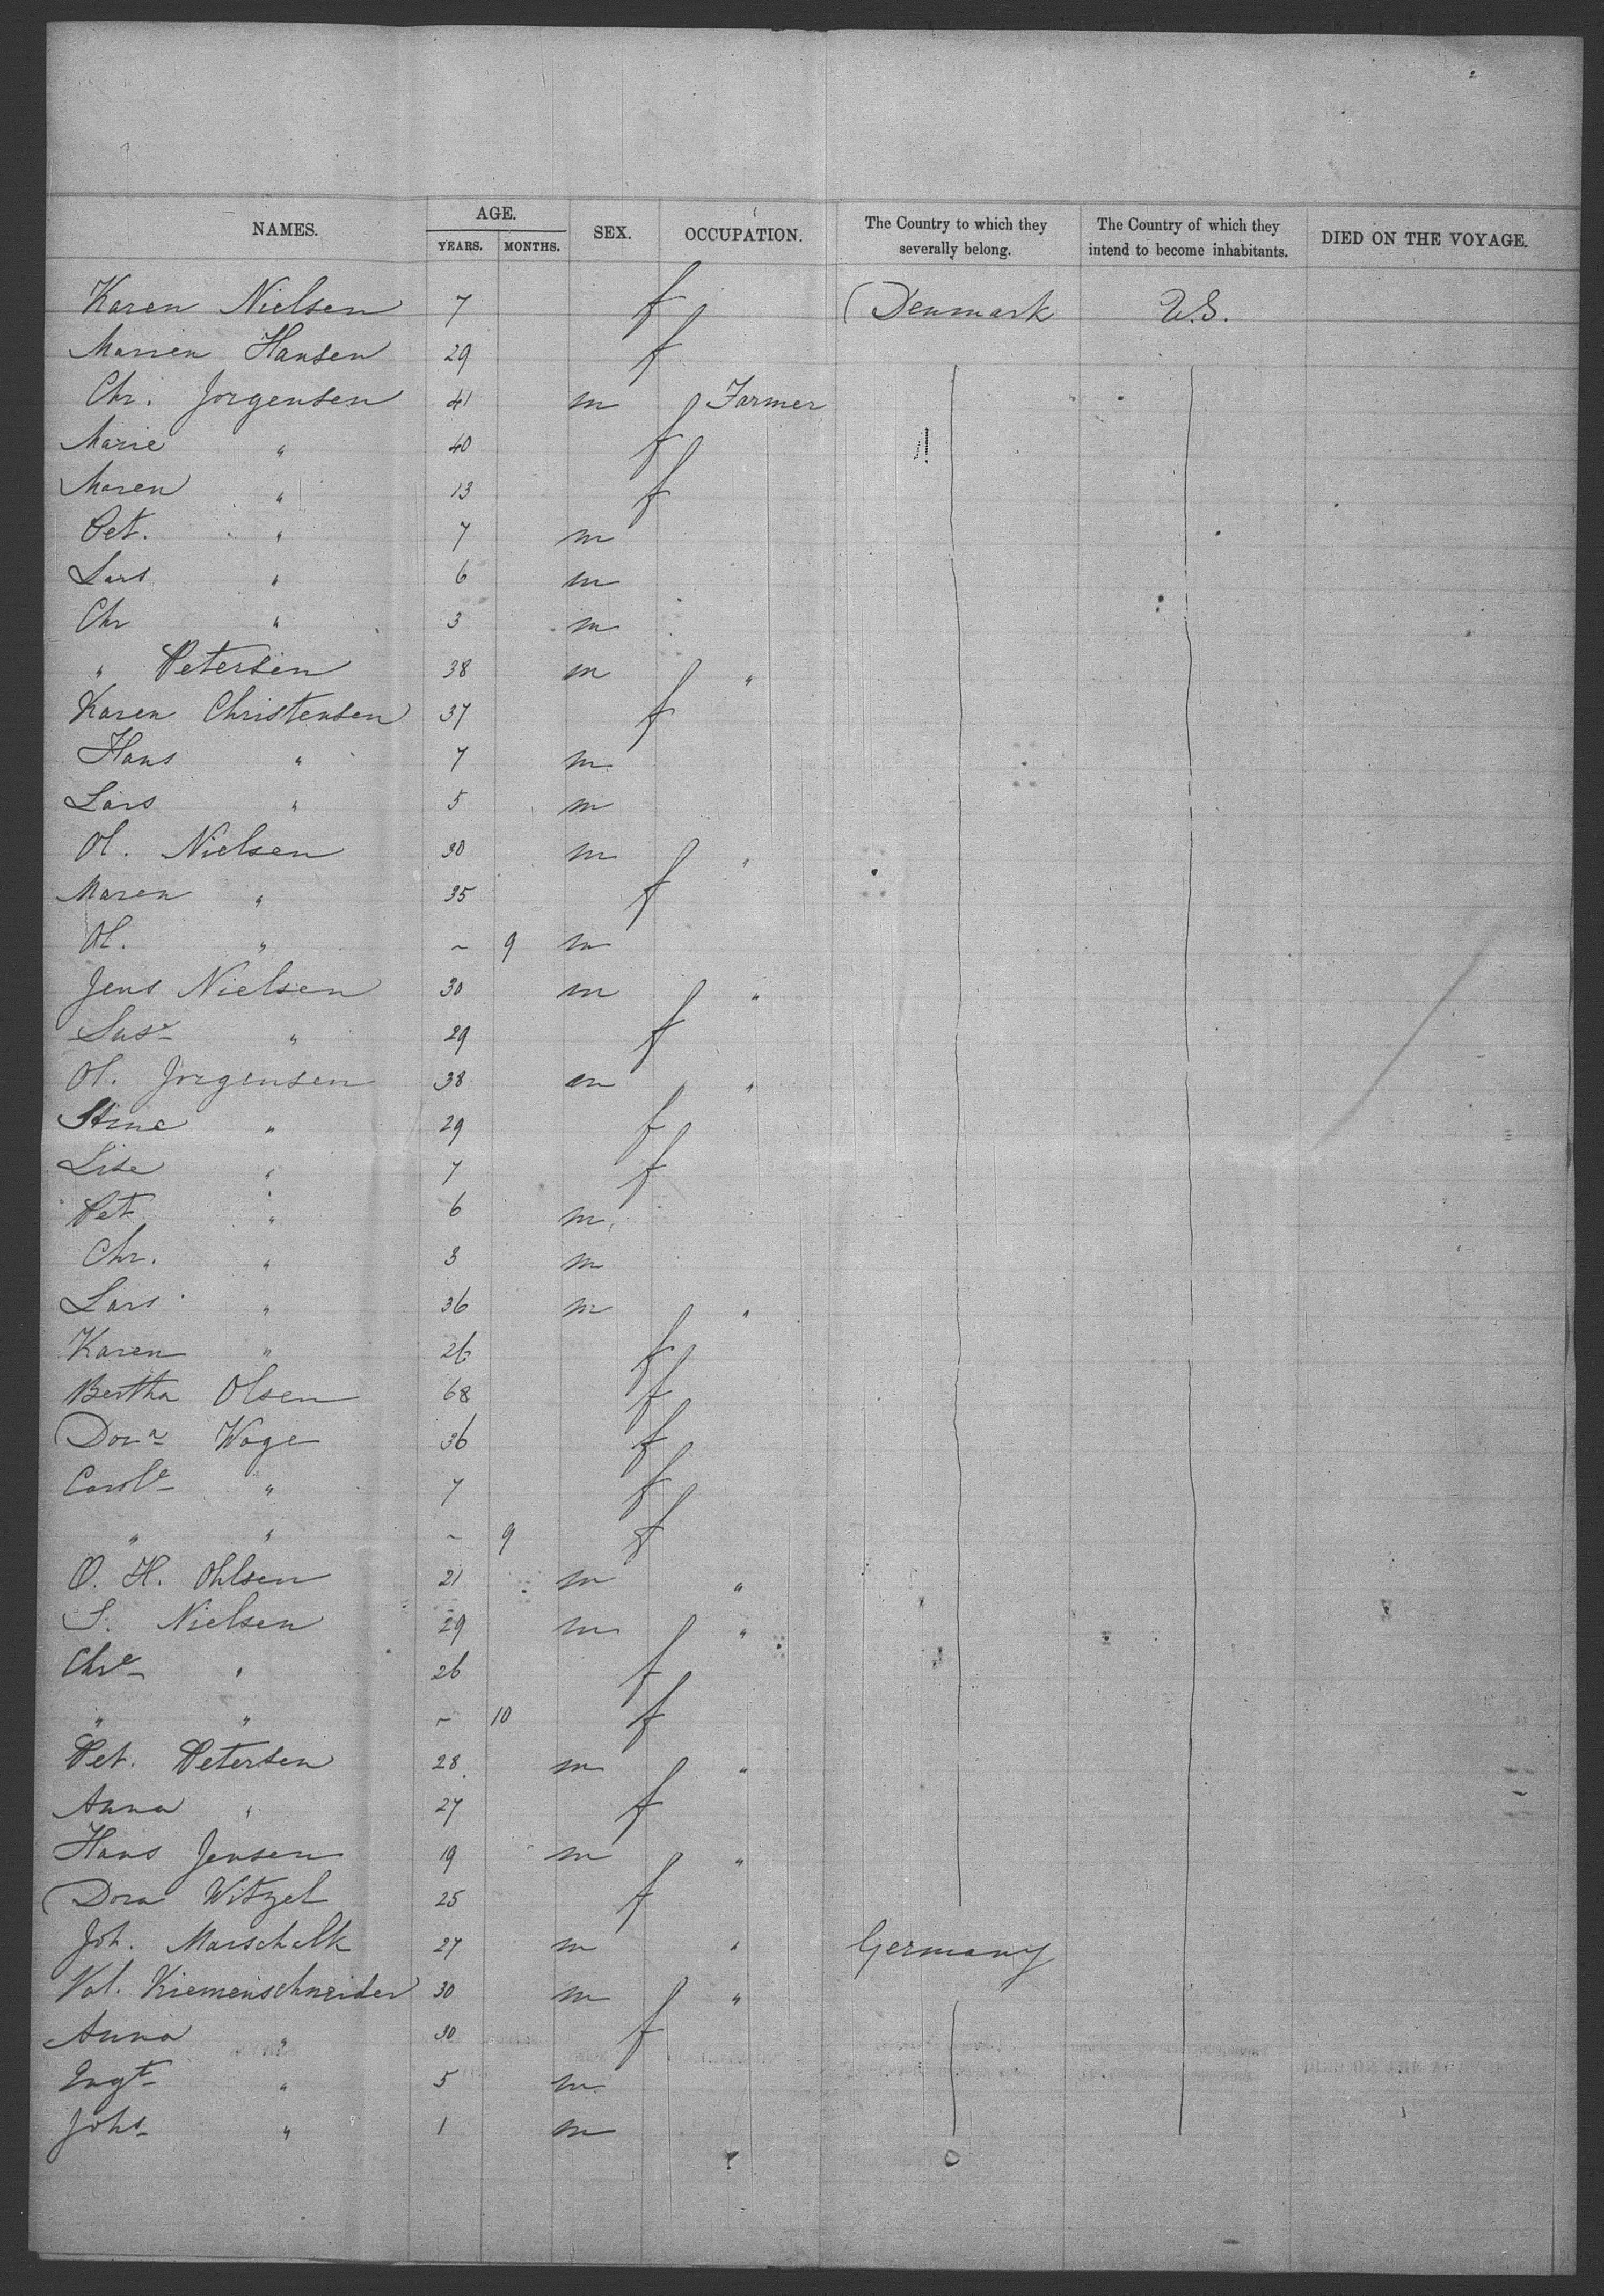 NAMES. AGE. YEARS. MONTHS. SEX. OCCUPATION. The Country to which they severally belong. The Country of which they intend to become inhabitants. DIED ON THE VOYAGE.
Karen Nielsen 7 f Denmark U.S.
Marien Hansen 29 f
Chr. Jorgensen 41 m Farmer
Marie " 40 f
Maren " 13 f
Pet. " 7 m
Lars " 6 m
Chr " 3 m
" Petersen 38 m "
Karen Christensen 37 f
Hans " 7 m
Lars " 5 m
Ol. Nielsen 30 m "
Maren " 35 f
Ol. " ~ 9 m
Jens Nielsen 30 m "
Suse " 29 f
Ol. Jorgensen 38 m "
Stine " 29 f
Lise " 7 f
Pet " 6 m
Chr. " 3 m
Lars " 36 m "
Karen " 26 f
Bertha Olsen 68 f
Dora Wage 36 f
Carole " 7 f
" " ~ 9 f
O. H. Ohlsen 21 m "
S. Nielsen 29 m "
Chre " 26 f
" " ~ 10 f
Pet. Petersen 28 m "
Anna " 27 f
Hans Jensen 19 m "
Dora Witzel 25 f
Joh. Marschalk 27 m " Germany
Val. Kiemenschneider 30 m "
Anna " 30 f
" 5 m
Johs " 1 m